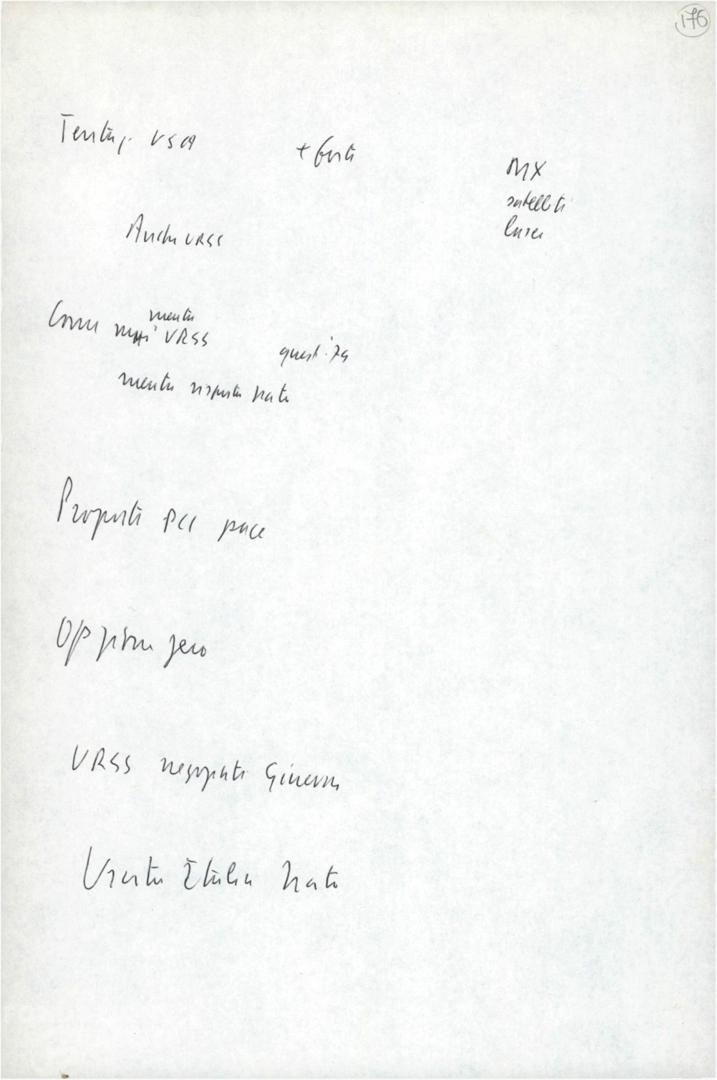 176
Tentaz. USA + forti MX
satelliti
laser
Anche URSS
Come mai mentre URSS quest.
mentre risposta Nato
Proposte PCI pace
Opzione zero
URSS negoziati Ginevra
Uscita Italia Nato